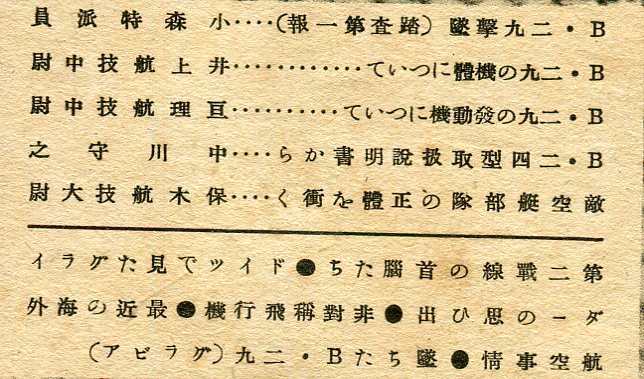 B・二九擊墜(踏査第一報)‥‥小森特派員
B・二九の機體について‥‥‥‥‥‥井上航技中尉
B・二九の發動機について‥‥‥‥‥亘理航技中尉
B・二四型取扱說明書から‥‥中川守之
敵空艇部隊の正體を衝く‥‥保木航技大尉
第二戰線の首腦たち●ドイツで見たグライ
ダーの思ひ出●非對稱飛行機●最近の海外
航空事情●墜ちたB・二九(グラビア)